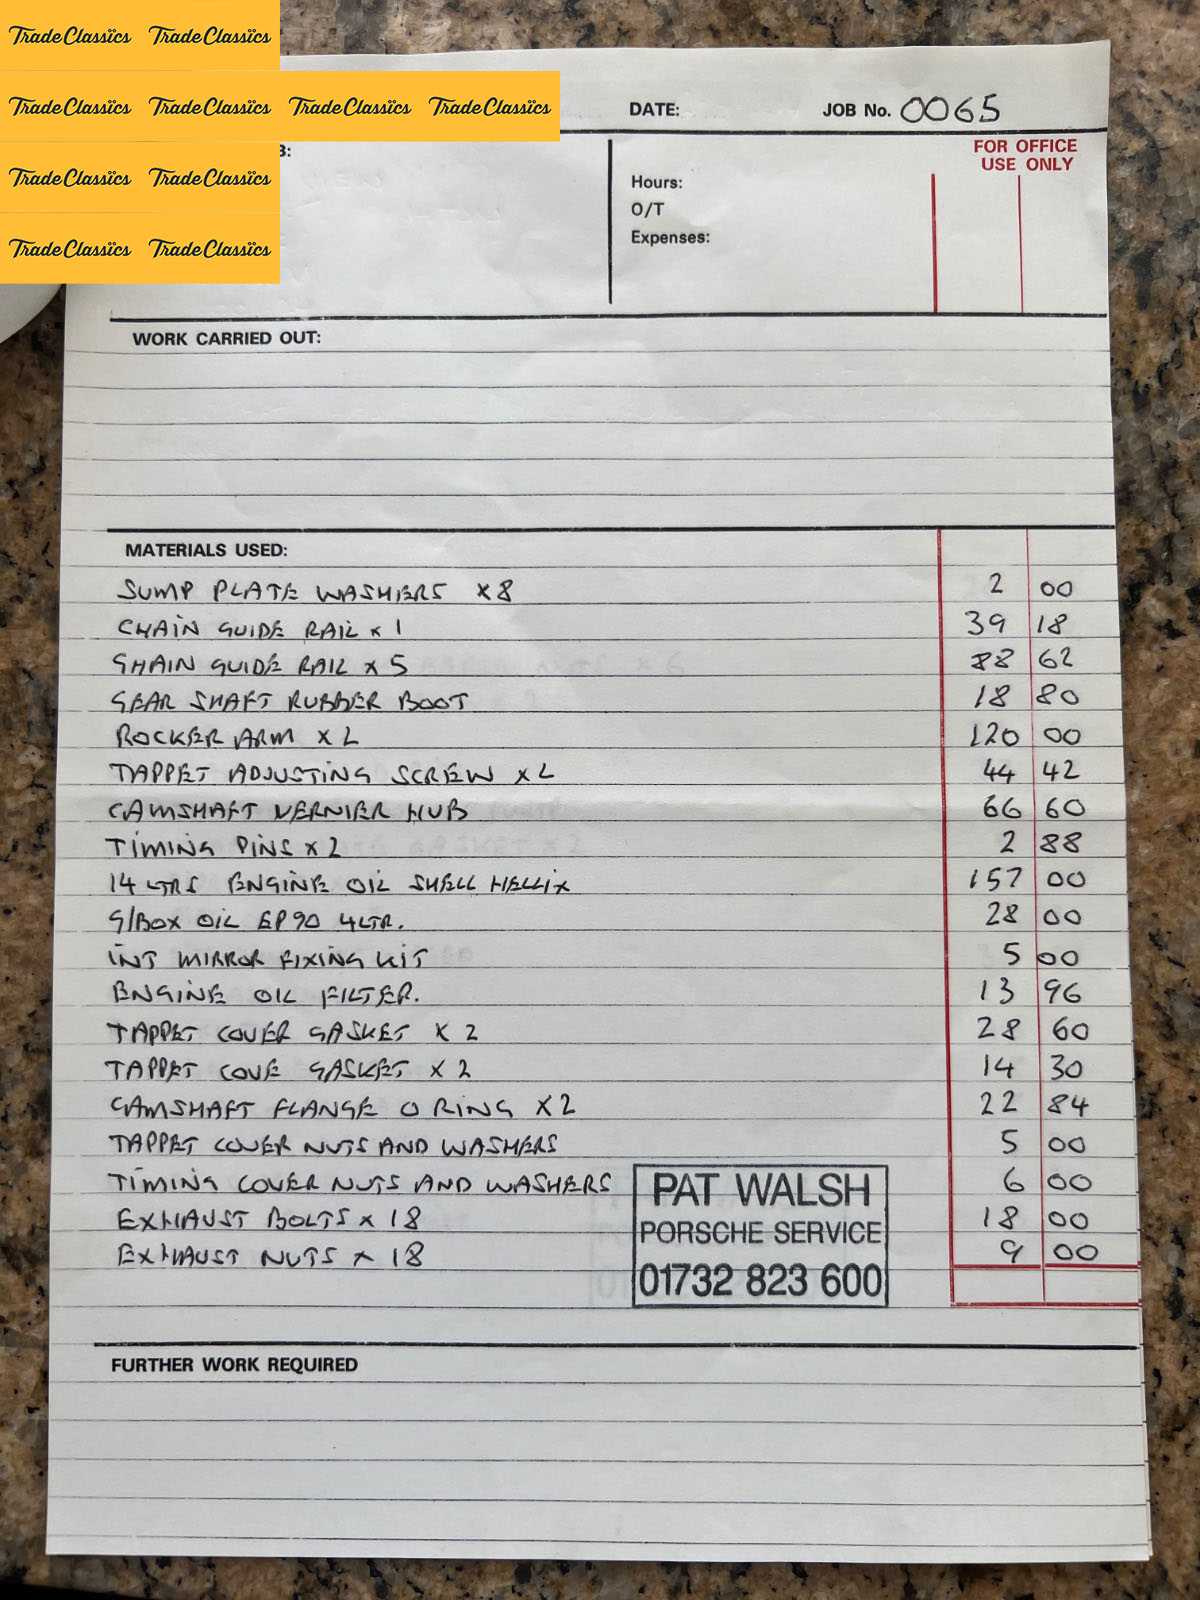 TradeClassics TradeClassics
TradeClassics TradeClassics TradeClassics TradeClassics
TradeClassics TradeClassics
TradeClassics TradeClassics
DATE: JOB No. 0065
B:
FOR OFFICE
USE ONLY
Hours:
O/T
Expenses:
WORK CARRIED OUT:
MATERIALS USED:
SUMP PLATE WASHERS x8 2 00
CHAIN GUIDE RAIL x 1 39 18
CHAIN GUIDE RAIL x 5 88 62
GEAR SHAFT RUBBER BOOT 18 80
ROCKER ARM x 2 120 00
TAPPET ADJUSTING SCREW x2 44 42
CAMSHAFT VERNIER HUB 66 60
TIMING PINS x 2 2 88
14 LTRS ENGINE OIL SHELL HELLIX 157 00
G/BOX OIL EP90 4LTR. 28 00
INT MIRROR FIXING KIT 5 00
ENGINE OIL FILTER. 13 96
TAPPET COVER GASKET x 2 28 60
TAPPET COVE GASKET x 2 14 30
CAMSHAFT FLANGE O RING x2 22 84
TAPPET COVER NUTS AND WASHERS 5 00
TIMING COVER NUTS AND WASHERS 6 00
EXHAUST BOLTS x 18 18 00
EXHAUST NUTS x 18 9 00
PAT WALSH
PORSCHE SERVICE
01732 823 600
FURTHER WORK REQUIRED